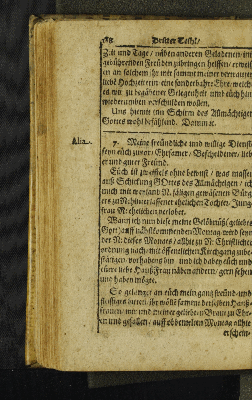 188 Dritter Theil/
Zeit und Tage / näben anderen Geladenen in
gebührenden Freuden zübringen helffen / erweis
an solchem ihr mit sammt meiner vertrauten
liebt Hochzeiterin eine sonderbahre Ehre / welch
es wir zu begäbener Gelegenheit umb euch hin
wiederumben verschulden wollen.
Uns hiemit in Schirm des Allmächtigen
Gottes wohl befählend. Dom. ut.
Alia.
7. Meine freündliche und willige Dienst
seyn euch zuvor / Ehrsamer / Bescheidener / lieb
er und guter Freünd.
Euch ist zweiffels ohne bewußt / was massen
auß Schickung GOttes des Allmächtigen / ich
mich mit weyland N. säligen gewäsenen Bürg
ers zu N. hinterlassener ehelichen Tochter / Jung
frau N. ehelichen verlobet.
Wann ich nun diese meine Gelübnüß / geliebts
Gott / auff nächstkommenden Montag wird seyn
der N. dieses Monats / allhie zu N. Christlicher
ordnung nach / mit öffentlichem Kirchgang zube-
stättigen vorhabens bin / und ich dabey euch und
eüere liebe Hauß-Frau näben anderen / gern sehen
und haben möchte.
So gelanget an euch mein gantz freünd- und
fleissiges bitten / ihr wöllt sammt derselben Hauß-
frauen / mir und meiner geliebten Braut zu Ehr-
en und gefallen / auff obbemelten Montag allhie
erschein-